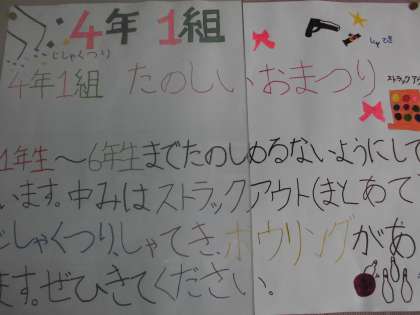 4年 1組
じしゃくつり
しゃてき
4年1組 たのしいおまつり
ストラックア
1年生〜6年生までたのしめるないようにして
います。中みはストラックアウト(まとあて
じしゃくつり、しゃてき、ボウリングがあ
ます。ぜひきてください。